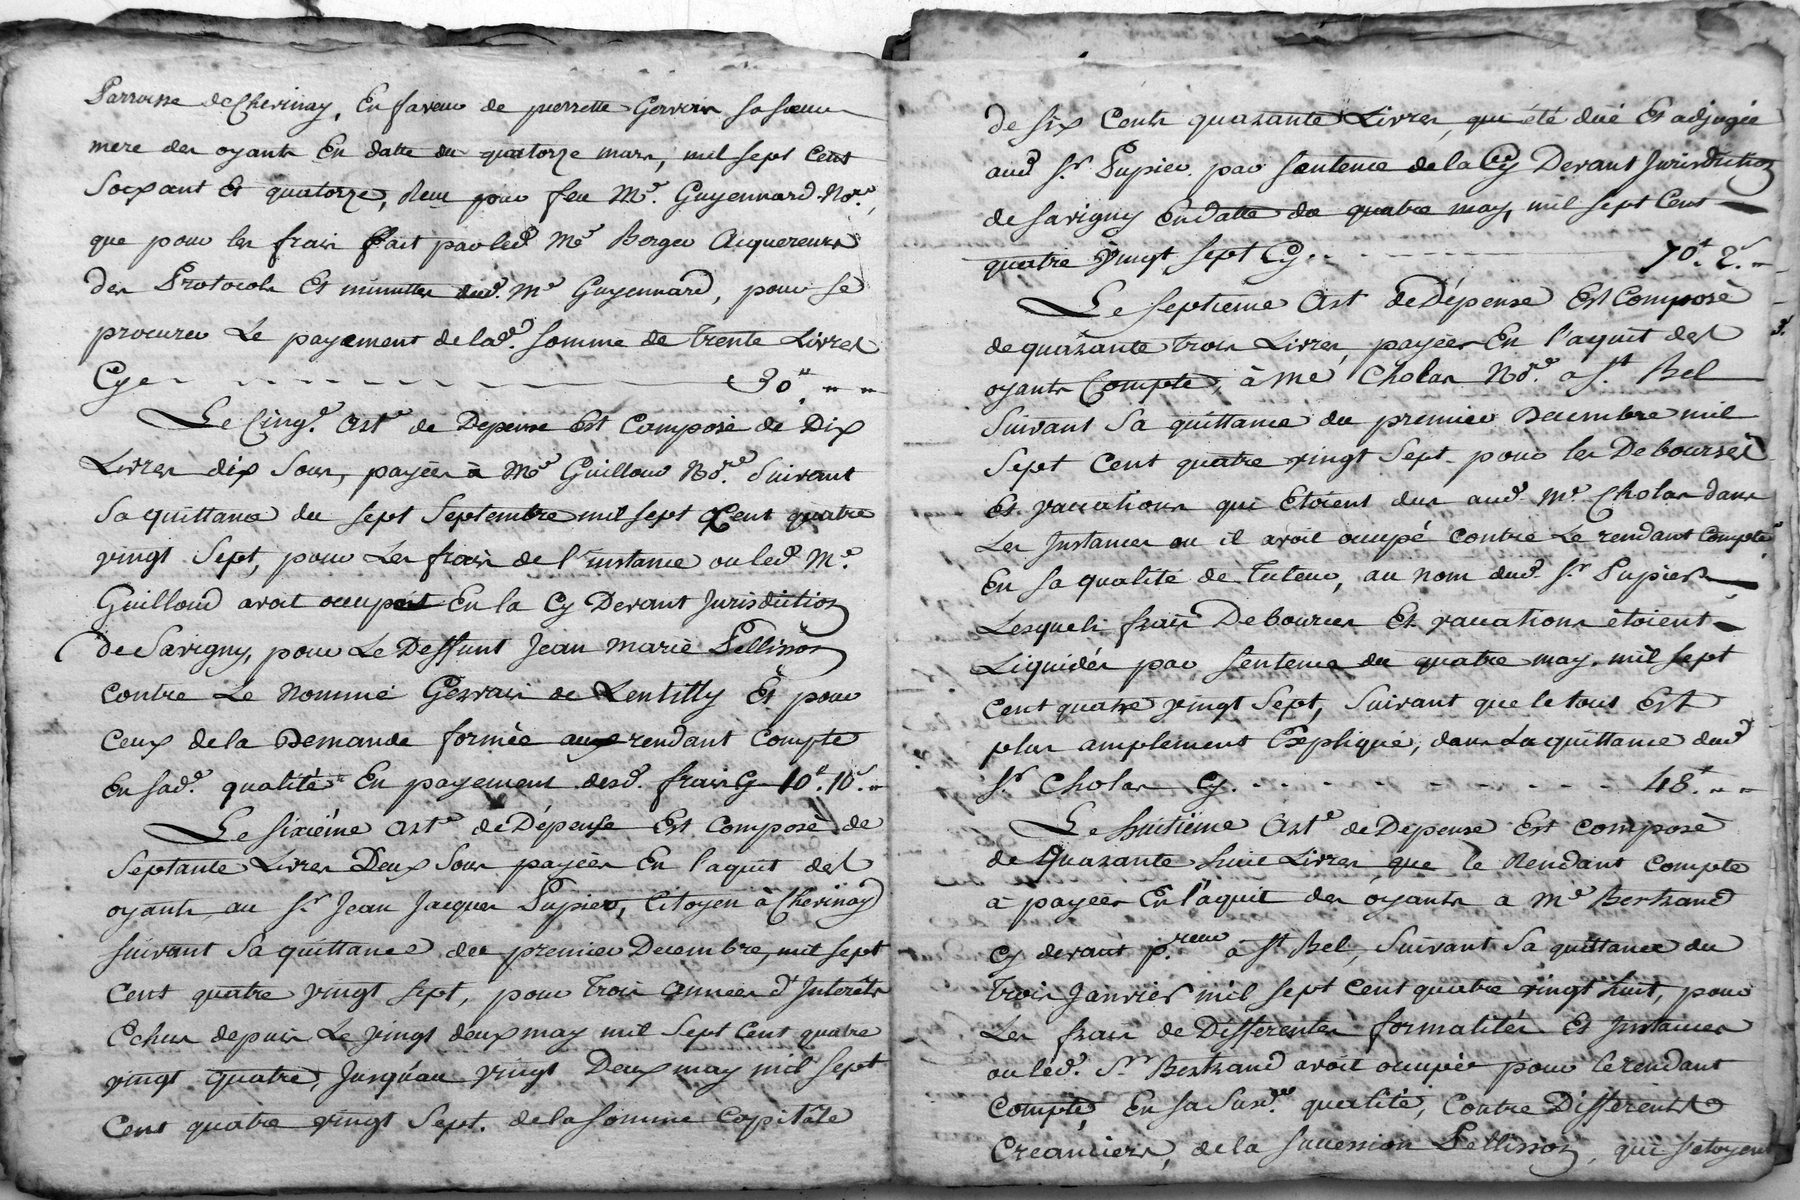 Parroisse de Chevinay, En faveur de pierrette Gervais sa soeur
mere des oyants En datte du quatorze mars, mil sept Cent
soixant Et quatorze, Reçu par feu Me. Guyennard Nore,
que pour les frais fait par led. Me Borger Acquereurs
des Protocols Et minuttes dud. Me Guyennard, pour se
procurer Le payement de lad. somme de trente Livres
Cy 30.tt " "
Le Cinqe. arte de Depense Est Composé de Dix
Livres dix sous, payées à Me Guilloud Nore. Suivant
Sa quittance du sept Septembre mil sept Cent quatre
vingt Sept, pour Les frais de l'instance ou led. Me.
Guilloud avoit occuppé En la Cy Devant Jurisdiction
de Savigny, pour Le Deffunt Jean Marie Pellisson
contre Le nommé Gervais de Lentilly Et pour
Ceux de la Demande formée au rendant Compte
En sad. qualité En payement desd. frais Cy 10.tt 10.s "
Le sixiéme arte de Dépense Est Composé de
septante Livres Deux Sous payées En l'aquit des
oyants au Sr. Jean Jacques Pupier, Citoyen à Chevinay
suivant Sa quittance du premier Decembre, mil sept
Cent quatre vingt sept, pour trois années d'Interêts
Echus depuis Le vingt deux may mil Sept Cent quatre
vingt quatre, Jusqu'au vingt Deux may mil sept
Cent quatre vingt Sept. de la somme Capitale
de six Cents quarante Livres, qui été düe Et adjugée
aud Sr. Pupier par sentence de la Cy Devant Jurisdiction
de Savigny En datte du quatre may, mil sept Cent
quatre vingt sept Cy. 70.tt 2.s "
Le septieme art de Dépense Est Composé
de quarante trois Livres, payées En l'aquit des
oyants Compte, à Me Cholas Nore. a St. Bel
Suivant Sa quittance du premier Decembre mil
Sept Cent quatre vingt Sept pour les Deboursés
Et vacations qui Etoient dus aud. Me. Cholas dans
Les Instances ou il avoit occupé contre Le rendant Compte
En sa qualité de Tuteur, au nom dud. Sr. Pupier
Lesquels frais Debourcés Et vacations étoient
Liquidés par sentence du quatre may, mil sept
Cent quatre vingt Sept, Suivant que le tout Est
plus amplement Expliqué, dans La quittance dud
Sr. Cholas Cy. 48.tt " "
Le huitiéme arte de Dépense Est composé
de Quarante huit Livres que le Rendant Compte
a payées En l'aquit des oyants a Me Bertrand
Cy devant p.reur à St Bel, Suivant Sa quittance du
trois Janvier mil sept cent quatre vingt huit, pour
Les frais de Differentes formalités Et Instances
ou led. Sr Bertrand avoit occupée pour le rendant
Compte, En sa Susde. qualité, Contre Differents
Creanciers, de la succession Pellisson, qui s'etoyent